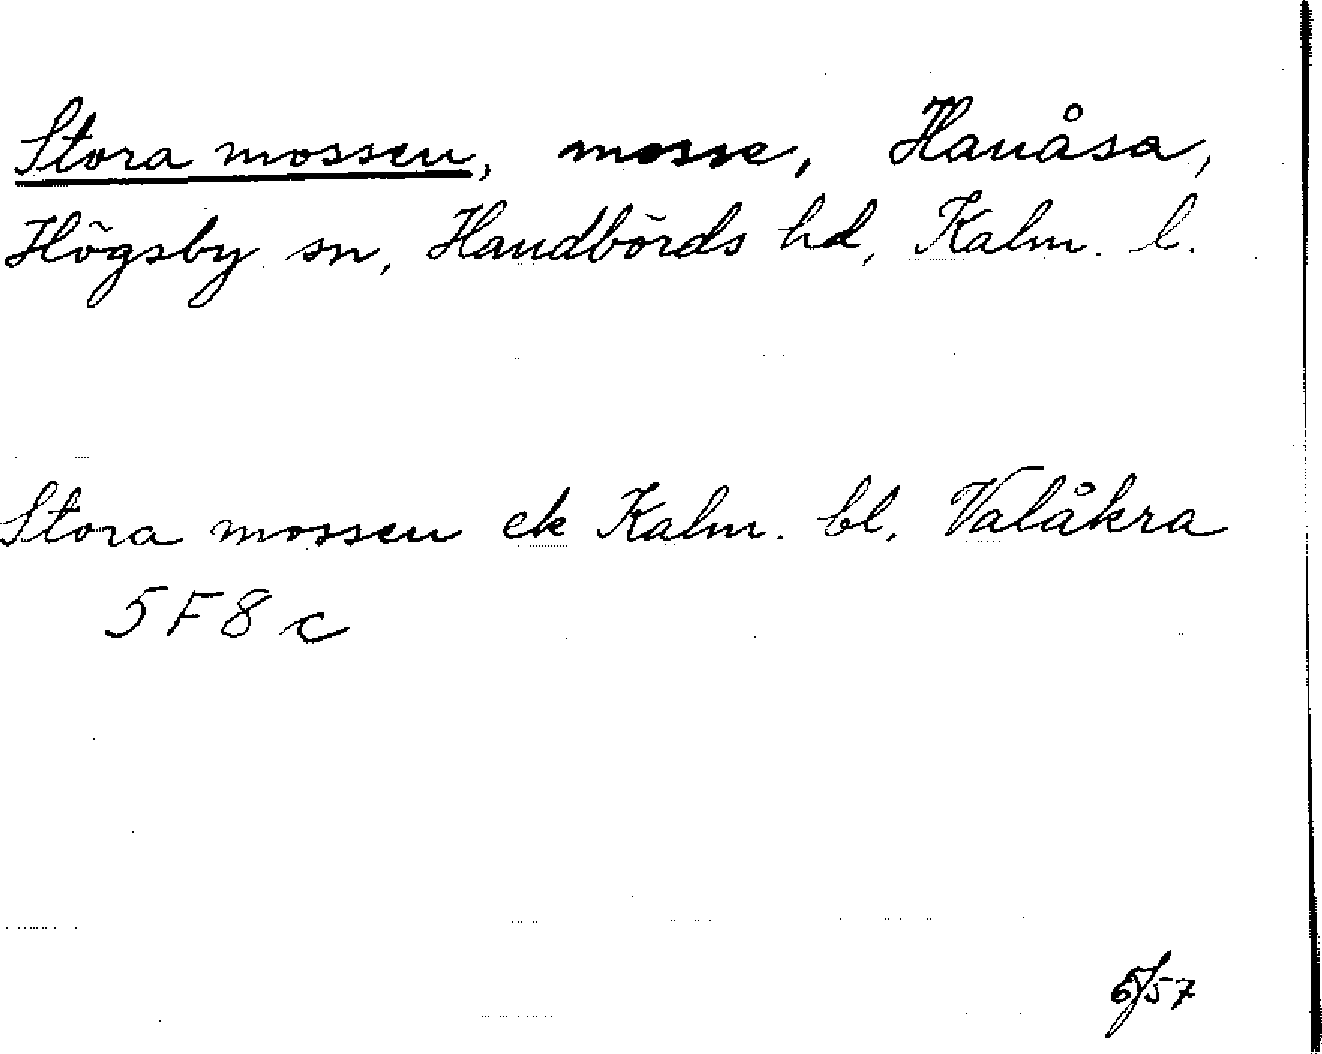 Stora mossen, mosse, Hanåsa,
Högsby sn, Handbörds hd, Kalm. l.
Stora mossen ek Kalm. bl. Valåkra
5F8c
6/57